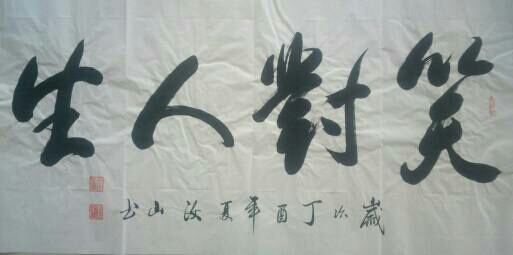 笑對人生
歲次丁酉年夏汝山书